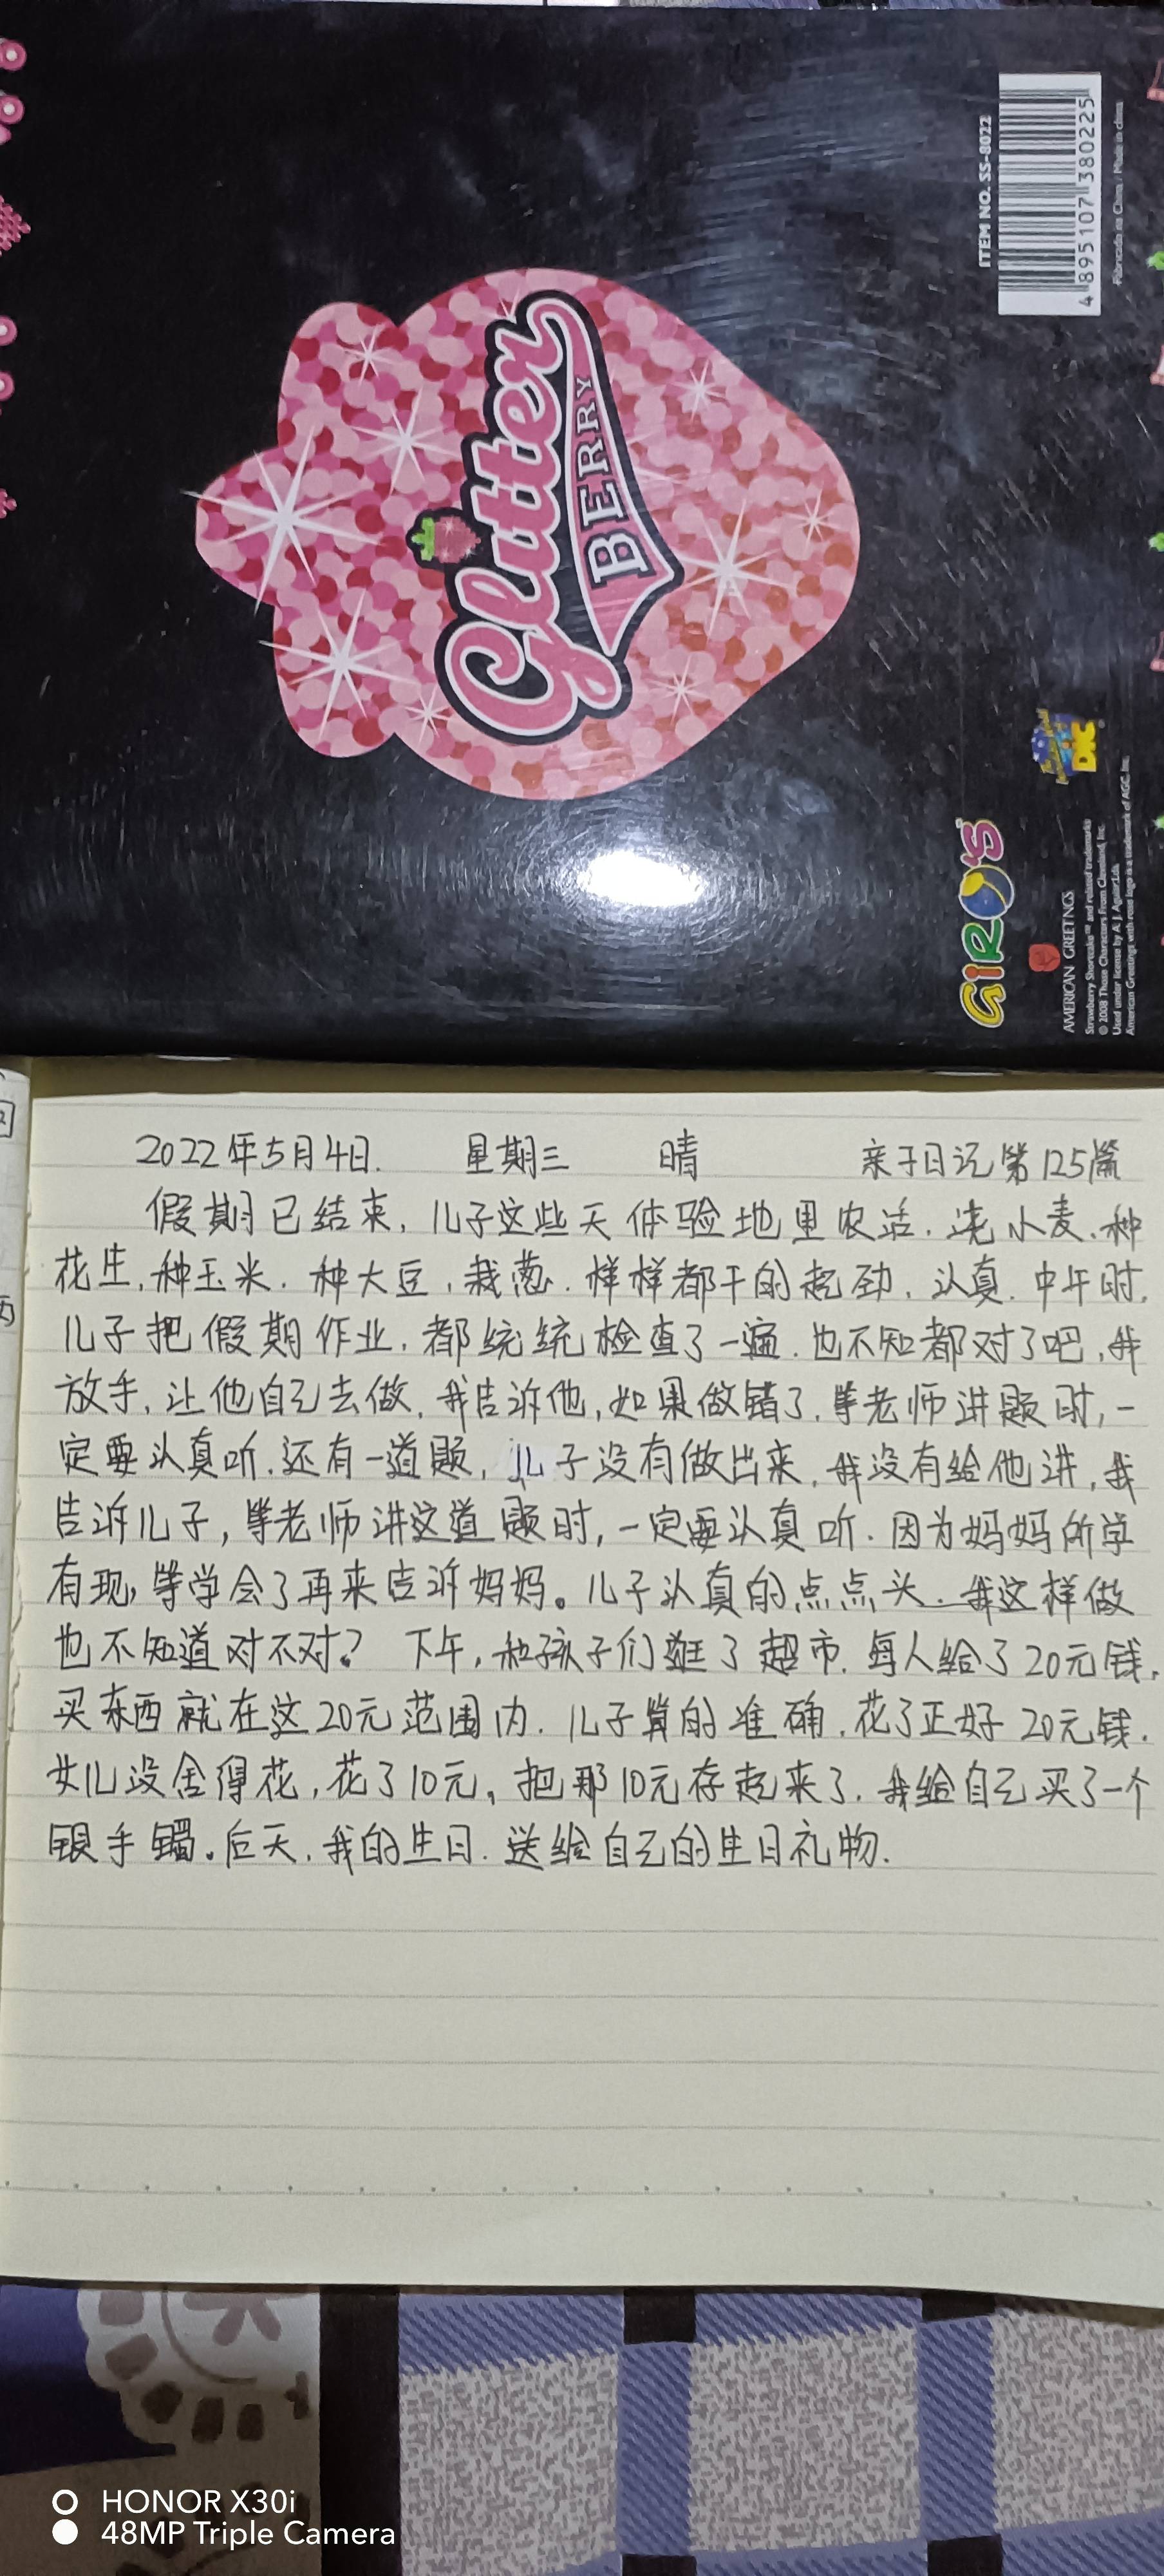 Glitter
BERRY
ITEM NO. SS-8022
4 895107 380225
Fabricado na China / Made in china
GIRO'S
DIC
AMERICAN GREETINGS
Strawberry Shortcake™ and related trademarks
© 2008 Those Characters From Cleveland, Inc.
Used under license by A. J. Aguiar Lda.
American Greetings with rose logo is a trademark of AGC, Inc.
2022年5月4日. 星期三 晴 亲子日记第125篇
假期已结束，儿子这些天体验地里农活．浇小麦、种
花生，种玉米．种大豆，栽葱．样样都干的起劲．认真．中午时，
儿子把假期作业，都统统检查了一遍．也不知都对了吧，我
放手，让他自己去做，我告诉他，如果做错了，等老师讲题时，一
定要认真听．还有一道题，儿子没有做出来，我没有给他讲，我
告诉儿子，等老师讲这道题时，一定要认真听．因为妈妈所学
有现，等学会了再来告诉妈妈。儿子认真的点点头．我这样做
也不知道对不对？ 下午，和孩子们逛了超市．每人给了20元钱，
买东西就在这20元范围内．儿子算的准确，花了正好20元钱．
女儿没舍得花，花了10元，把那10元存起来了．我给自己买了一个
银手镯。后天，我的生日．送给自己的生日礼物．
HONOR X30i
48MP Triple Camera